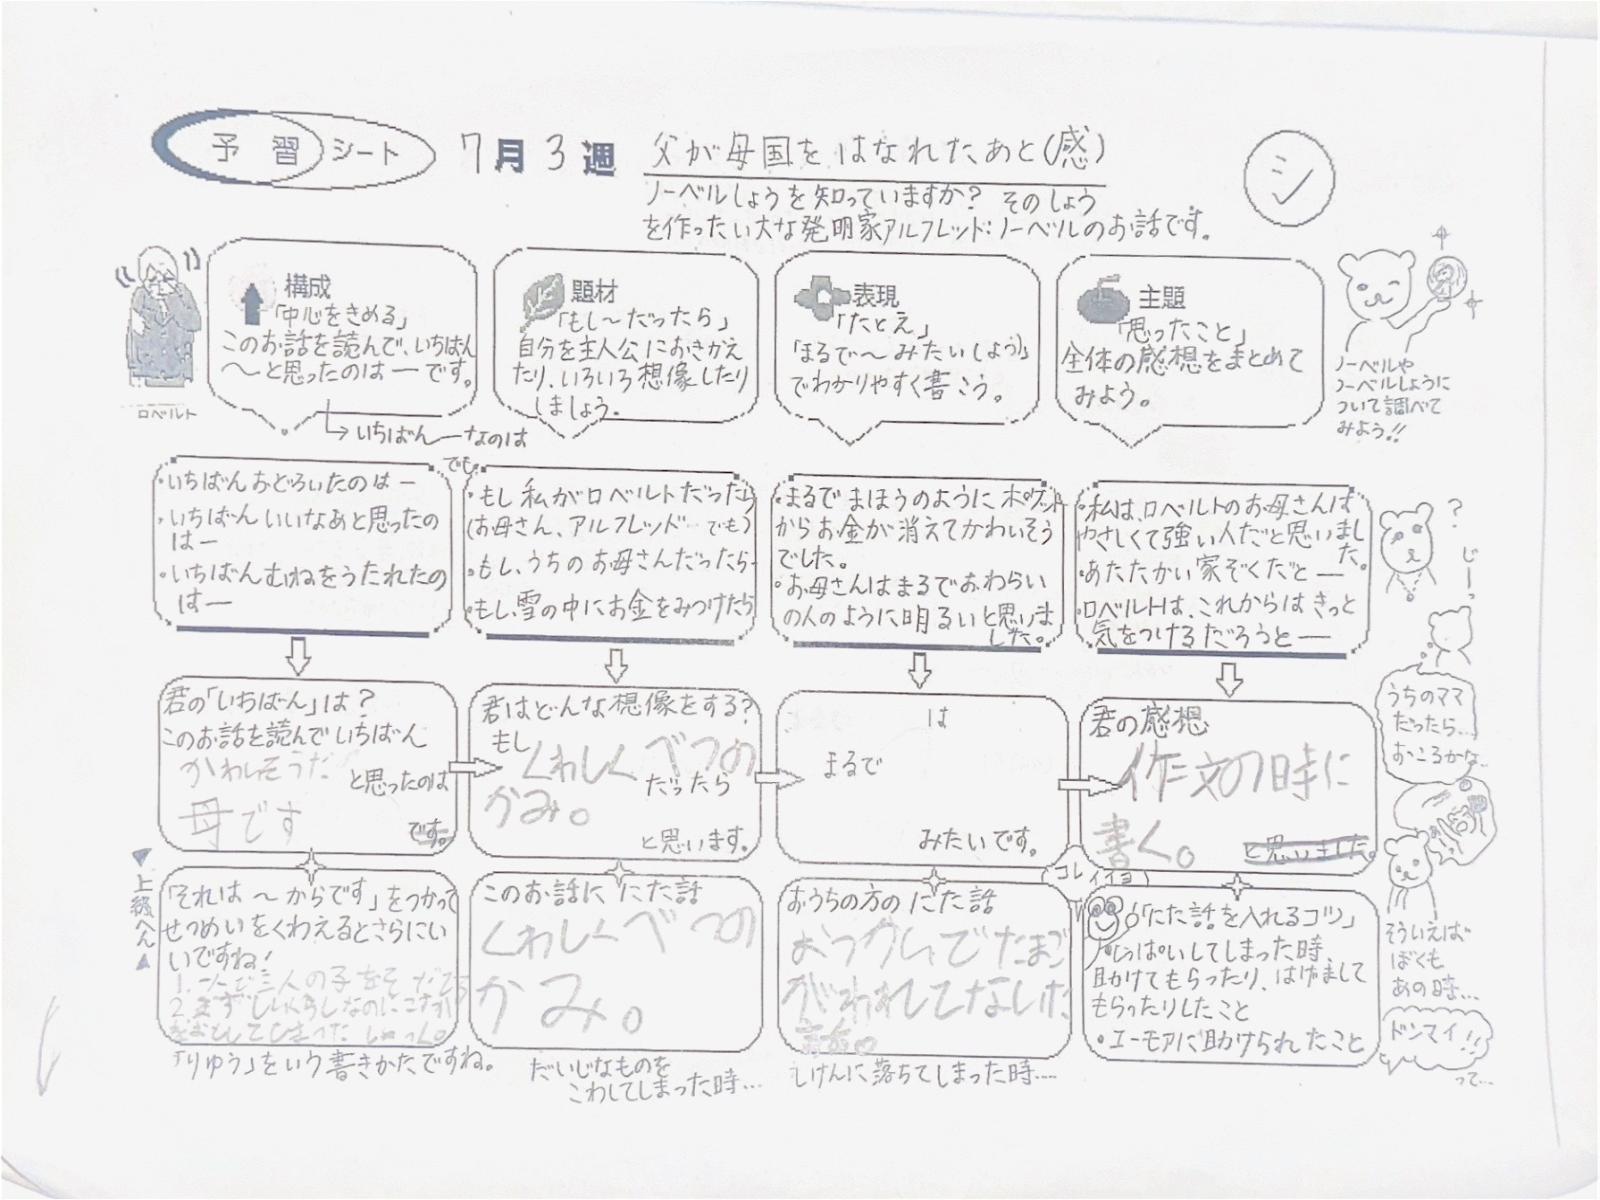 予習シート 7月3週 父が母国をはなれたあと(感)
シ
ノーベルしょうを知っていますか? そのしょう
を作ったい大な発明家アルフレッド:ノーベルのお話です。
構成
「中心をきめる」
このお話を読んで、いちばん
〜と思ったのは―です。
ロベルト
→いちばん―なのは
題材
「もし〜だったら」
自分を主人公におきかえ
たり、いろいろ想像したり
しましょう。
表現
「たとえ」
「まるで〜みたい(よう)」
でわかりやすく書こう。
主題
「思ったこと」
全体の感想をまとめて
みよう。
ノーベルや
ノーベルしょうに
ついて調べて
みよう!!
・いちばんおどろいたのは―
・いちばんいいなあと思ったの
は―
・いちばんむねをうたれたの
は―
でも
・もし私がロベルトだったら
(お母さん、アルフレッド でも)
・もし、うちのお母さんだったら―
・もし、雪の中にお金をみつけたら
・まるでまほうのようにポケット
からお金が消えてかわいそう
でした。
・お母さんはまるでおわらい
の人のように明るいと思いま
した。
・私は、ロベルトのお母さんは
やさしくて強い人だと思いまし
た。
・あたたかい家ぞくだと―
・ロベルトは、これからはきっと
気をつけるだろうと―
?
じーっ
うちのママ
だったら…
おこるかな…
君の「いちばん」は?
このお話を読んでいちばん
かわいそうだ
と思ったのは
母です
です。
君はどんな想像をする?
もし
くわしくべつの
かみ。
だったら
と思います。
は
まるで
みたいです。
君の感想
作文の時に
書く。
と思いました。
▼上級へん▲
「それは〜からです」をつかって
せつめいをくわえるとさらにい
いですね!
「りゆう」をいう書きかたですね。
このお話に にた話
くわしくべつの
かみ。
だいじなものを
こわしてしまった時…
おうちの方の にた話
話。
しけんに落ちてしまった時…
「にた話を入れるコツ」
・しっぱいしてしまった時、
助けてもらったり、はげまして
もらったりしたこと
・ユーモアに助けられたこと
そういえば
ぼくも
あの時…
ドンマイ!!
って…